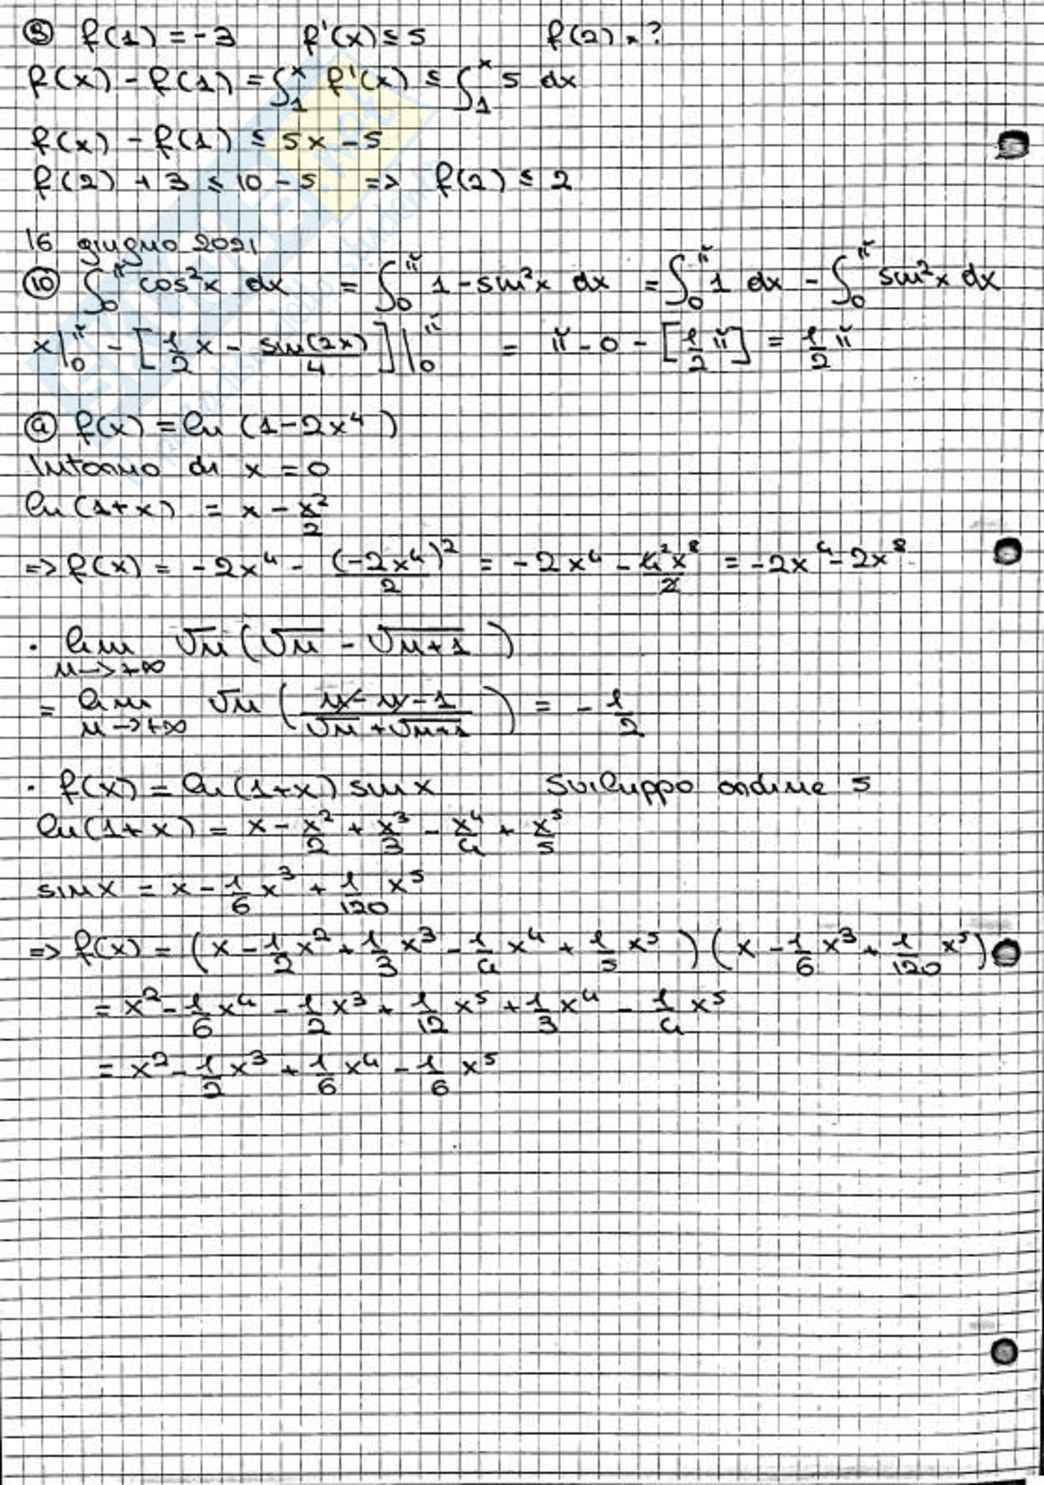 ③ f(1) = -3 f'(x) ≤ 5 f(2) = ?
f(x) - f(1) = ∫₁ˣ f'(x) ≤ ∫₁ˣ 5 dx
f(x) - f(1) ≤ 5x - 5
f(2) + 3 ≤ 10 - 5 => f(2) ≤ 2
16 giugno 2021
⑩ ∫₀^π cos²x dx = ∫₀^π 1 - sin²x dx = ∫₀^π 1 dx - ∫₀^π sin²x dx
x|₀^π - [1/2 x - sin(2x)/4]|₀^π = π - 0 - [1/2 π] = 1/2 π
ⓐ f(x) = ln (1 - 2x⁴)
Intorno di x = 0
ln(1+x) = x - x²/2
=> f(x) = -2x⁴ - (-2x⁴)²/2 = -2x⁴ - 4²x⁸/2 = -2x⁴ - 2x⁸
· lim n->+∞ √n (√n - √n+1)
= lim n->+∞ √n ((n - n - 1)/(√n + √n+1)) = -1/2
· f(x) = ln(1+x) sin x Sviluppo ordine 5
ln(1+x) = x - x²/2 + x³/3 - x⁴/4 + x⁵/5
sin x = x - 1/6 x³ + 1/120 x⁵
=> f(x) = (x - 1/2 x² + 1/3 x³ - 1/4 x⁴ + 1/5 x⁵) (x - 1/6 x³ + 1/120 x⁵)
= x² - 1/6 x⁴ - 1/2 x³ + 1/12 x⁵ + 1/3 x⁴ - 1/4 x⁵
= x² - 1/2 x³ + 1/6 x⁴ - 1/6 x⁵